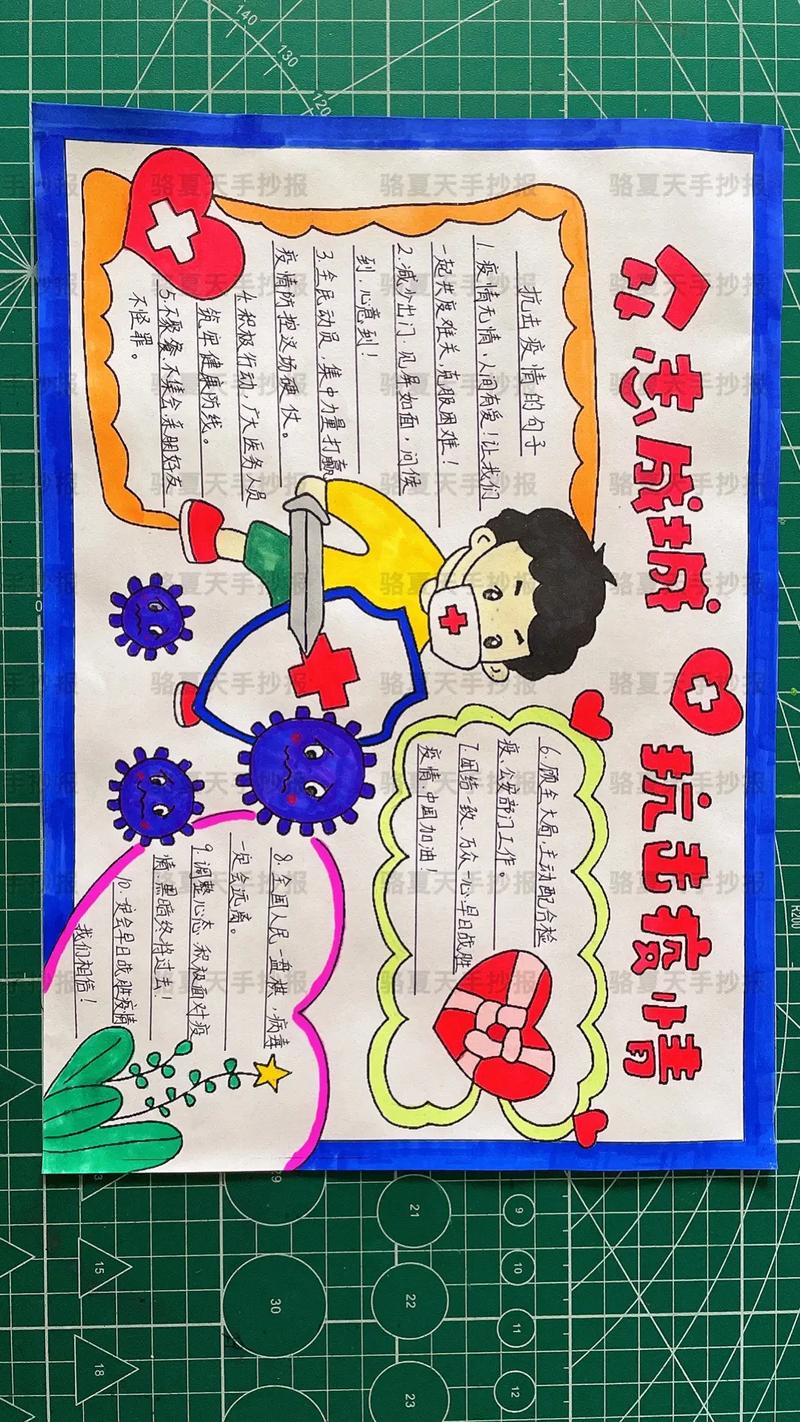 众志成城 抗击疫情
抗击疫情的句子
1.疫情无情,人间有爱!让我们
一起共度难关,克服困难!
2.减少出门,见屏如面,问候
到,心意到!
3.全民动员,集中力量打赢
疫情防控这场硬仗。
4.积极行动,广大医务人员
筑牢健康防线。
5.不聚餐,不集会,亲朋好友
不怪罪。
6.顾全大局,主动配合检
疫、公安部门工作。
7.团结一致、万众一心,早日战胜
疫情,中国加油!
8.全国人民一盘棋,病毒
一定会远离。
9.调整心态,积极面对疫
情,黑暗终将过去!
10.一定会早日战胜疫情
我们相信!
骆夏天手抄报
140
130
120
0
R200
9
10
11
12
15
18
21
22
23
29
30